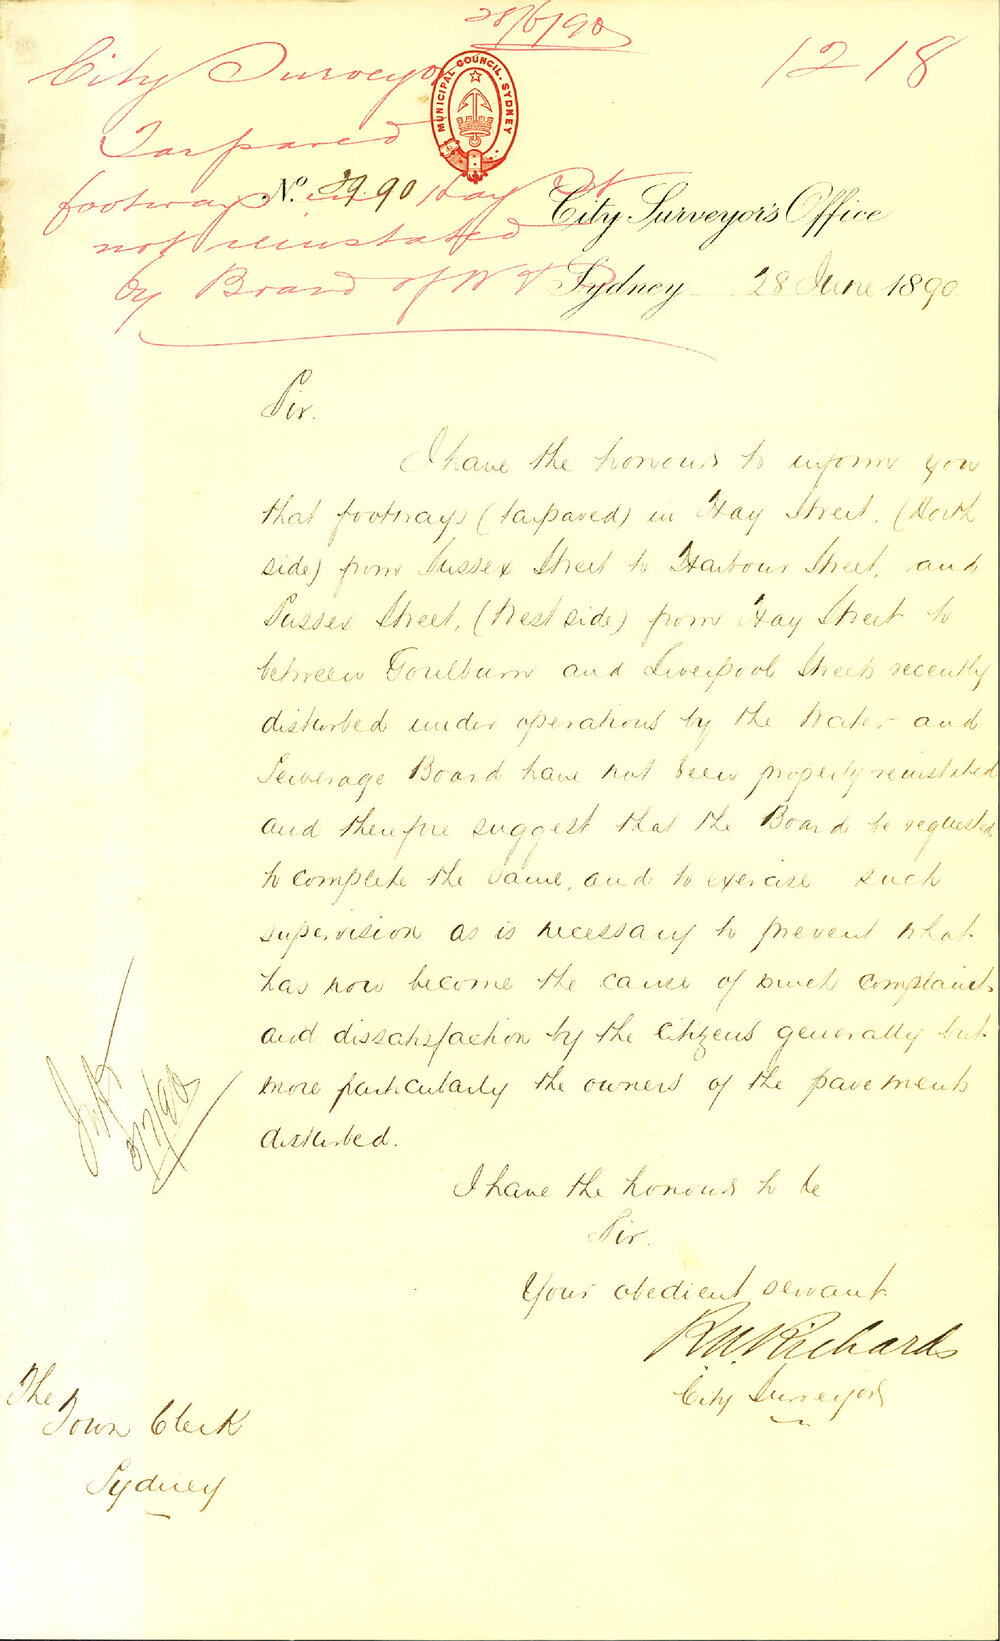 28/6/90
1218
City Surveyor
Tarpaved
footways in Hay St
not reinstated
by Board of W & S
MUNICIPAL COUNCIL. SYDNEY
No. 29.90
City Surveyor's Office
Sydney 28 June 1890
Sir.
I have the honour to inform you
that footways (tarpaved) in Hay Street, (North
side) from Sussex Street to Harbour Street, and
Sussex Street, (West side) from Hay Street to
between Goulburn and Liverpool Streets recently
disturbed under operations by the Water and
Sewerage Board have not been properly reinstated
and therefore suggest that the Board be requested
to complete the same, and to exercise such
supervision as is necessary to prevent what
has now become the cause of much complaint
and dissatisfaction by the citizens generally but
more particularly the owners of the pavements
disturbed.
I have the honour to be
Sir.
Your obedient servant
R W Richards
City Surveyor
3/7/90
The
Town Clerk
Sydney